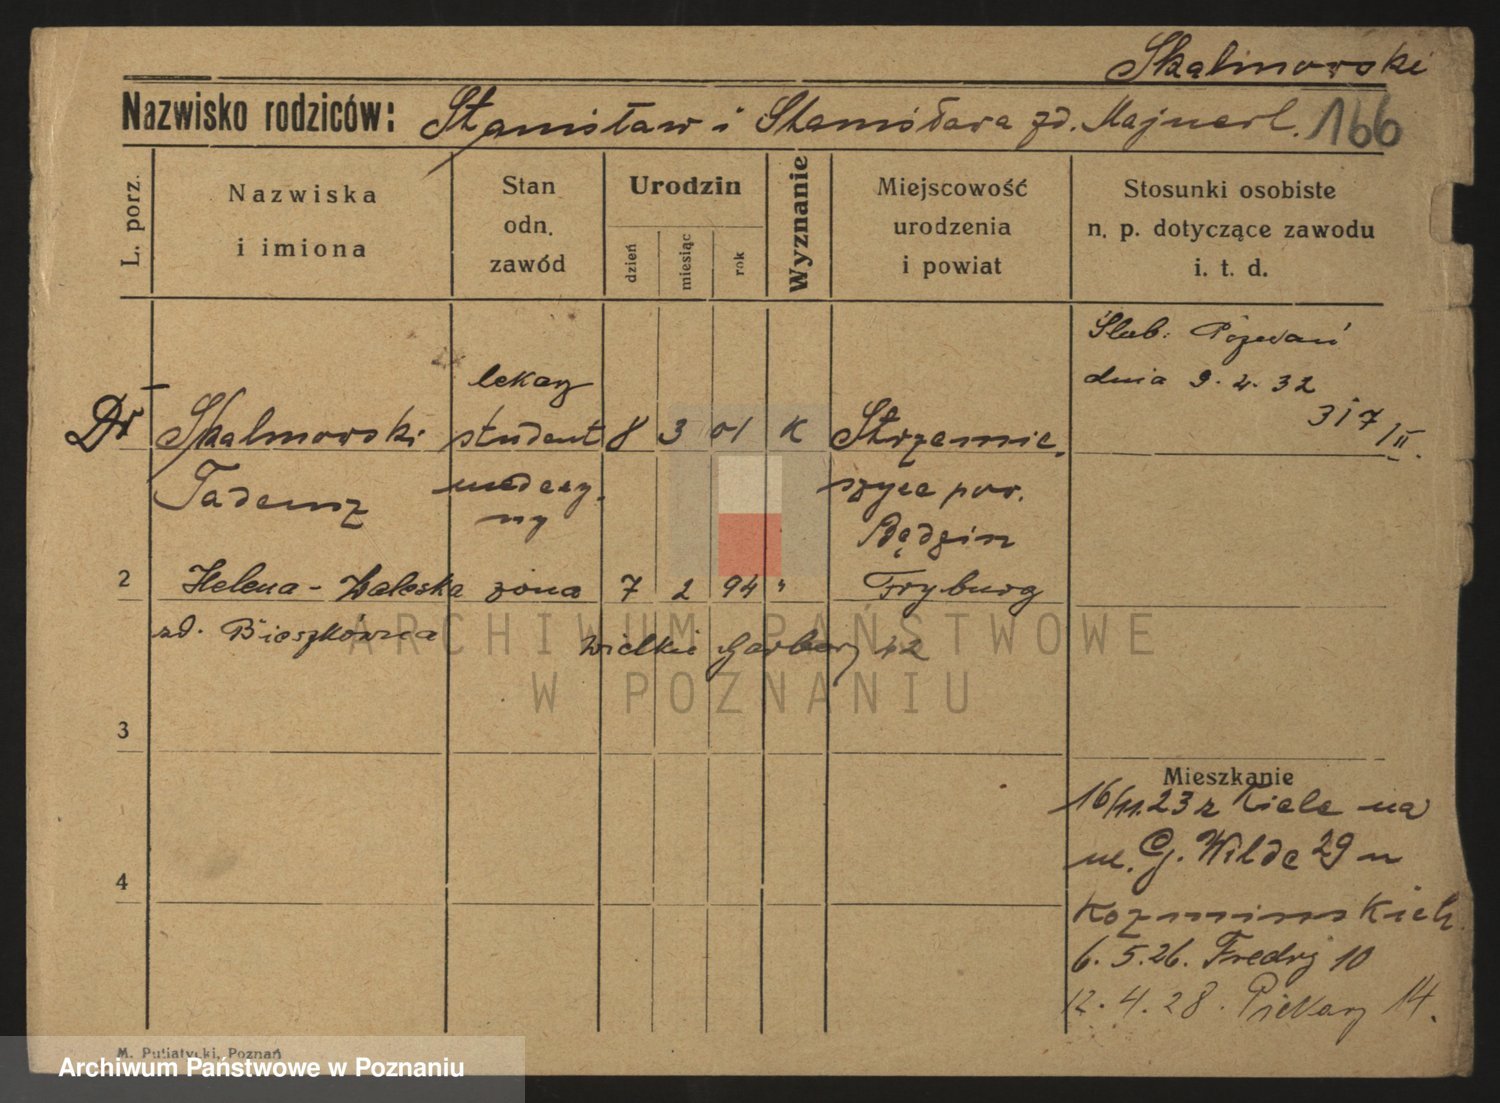 Skalmorski
Nazwisko rodziców: Stanisław i Stanisława zd. Majnerl. 166
L. porz.
Nazwiska
i imiona
Stan
odn.
zawód
Urodzin
dzień
miesiąc
rok
Wyznanie
Miejscowość
urodzenia
i powiat
Stosunki osobiste
n. p. dotyczące zawodu
i. t. d.
Ślub: Poznań
dnia 9. 2. 32
317/II.
lekarz
Dr Skalmorski student 8 3 01 K Strzemie
Tadeusz medycy- szyce pow.
ny Będzin
2 Helena - Waleska żona 7 2 94 " Fryburg
zd. Bioszkówna Wielkie Garbary 42
3
4
Mieszkanie
16/11.23 z Kielc na
ul. G. Wilde 29 u
Kozminskich
6. 5. 26. Fredry 10
12. 4. 28. Piekary 14.
M. Putiatycki, Poznań
ARCHIWUM PAŃSTWOWE
W POZNANIU
Archiwum Państwowe w Poznaniu